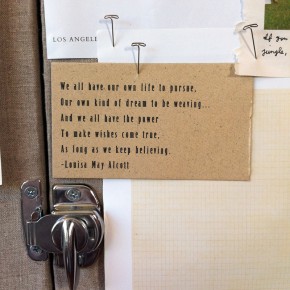 LOS ANGELE
If you
jungle,
We all have our own life to pursue,
Our own kind of dream to be weaving...
And we all have the power
To make wishes come true,
As long as we keep believing.
-Louisa May Alcott